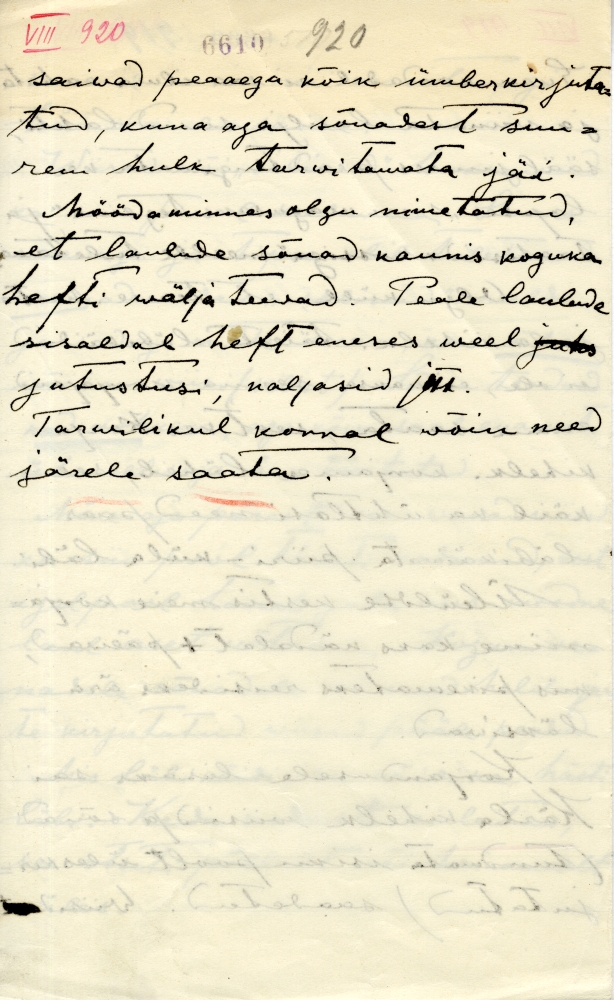 VIII 920 6610 920
saiwad peaaega kõik ümberkirjuta=
tud, kuna aga sõnadest suu=
rem hulk tarwitamata jäi.
Möödaminnes olgu nimetatud,
et laulude sõnad kaunis koguka
hefti wälja teewad. Peale laulude
sisaldab heft eneses weel juhs
jutustusi, naljasid jm.
Tarwilikul korral wõin need
järele saata.